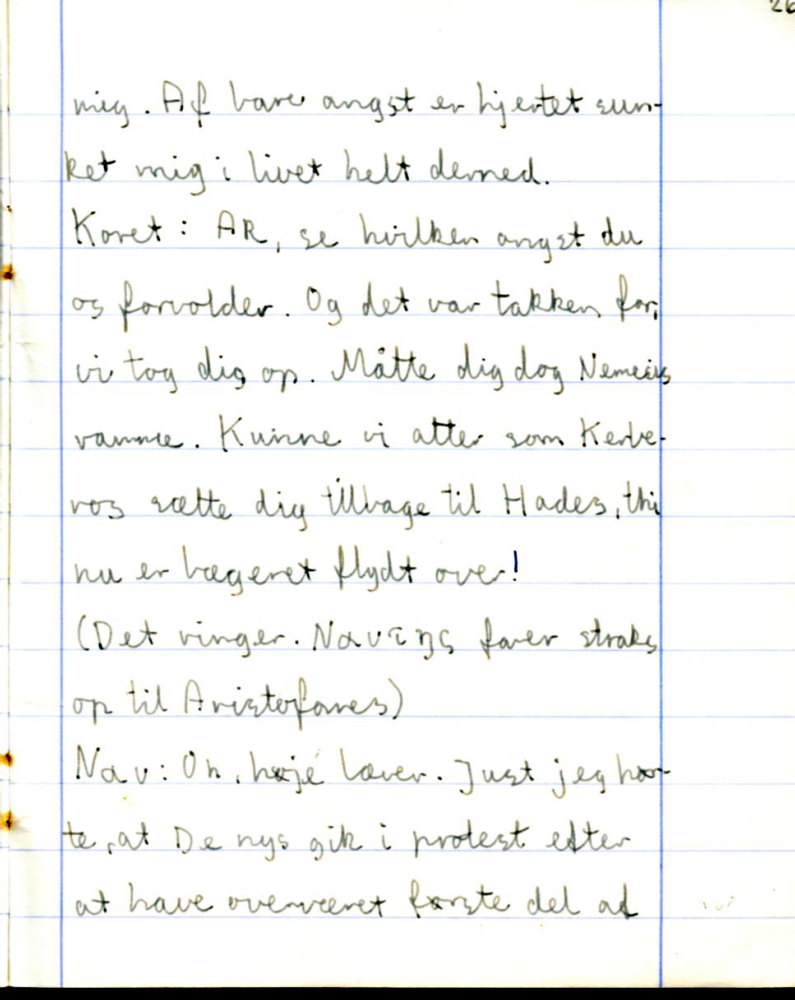 26
mig. Af bare angst er hjertet sun-
ket mig i livet helt derned.
Koret: Ak, se hvilken angst du
os forvolder. Og det var takken for,
vi tog dig op. Måtte dig dog Nemesis
ramme. Kunne vi atter som Kerbe-
ros sætte dig tilbage til Hades, thi
nu er bægeret flydt over!
(Det ringer. Ναύτης farer straks
op til Aristofanes)
Nav: Oh, høje lærer. Just jeg hør-
te, at De nys gik i protest efter
at have overværet første del af